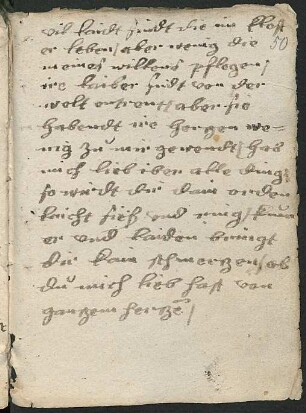 vil laidt sindt die im klost
50
er leben/ aber wenig die
meines willens pflegen/
ire laiber sindt von der
welt entrent aber sie
habendt ire hergen we=
nig zu mir gewendt/ hab
mich lieb iber alle ding/
so würdt dir dain orden
laicht sieß vnd ring/ kum̄
er vnd laiden bringt
dir kain schmertzen/ ob
du mich lieb hast von
gantzem hertzē/